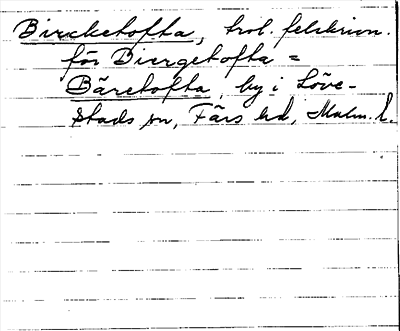 Birckетofta, trol. felskrivn.
för Biergetofta =
Bäretofta, by i Löve-
stads sn, Färs hd, Malm. l.